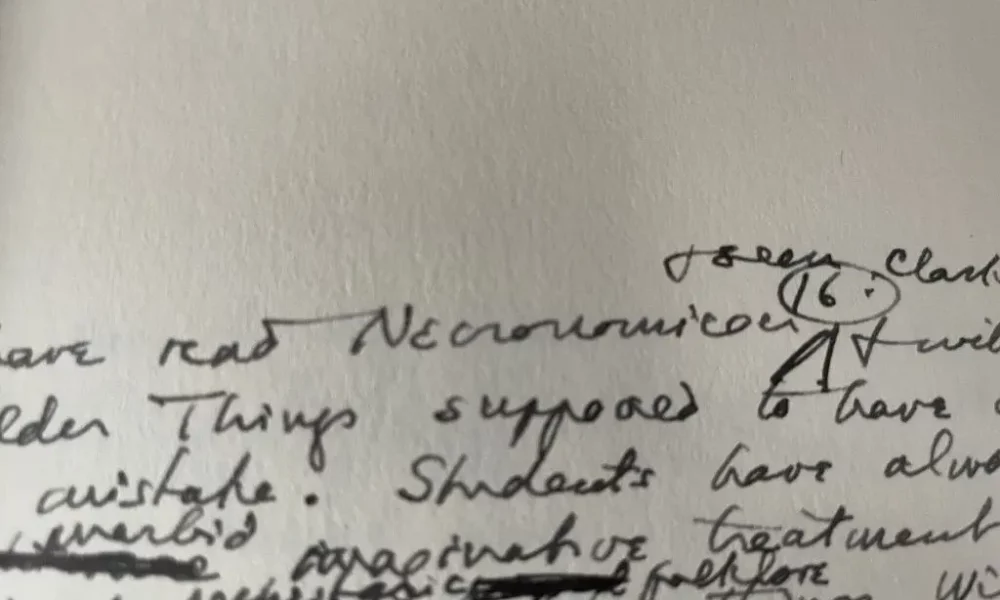 & seen Clark
16.
have read Necronomicon & will
elder Things supposed to have
mistake. Students have alwa
morbid
imaginative treatment
folklore